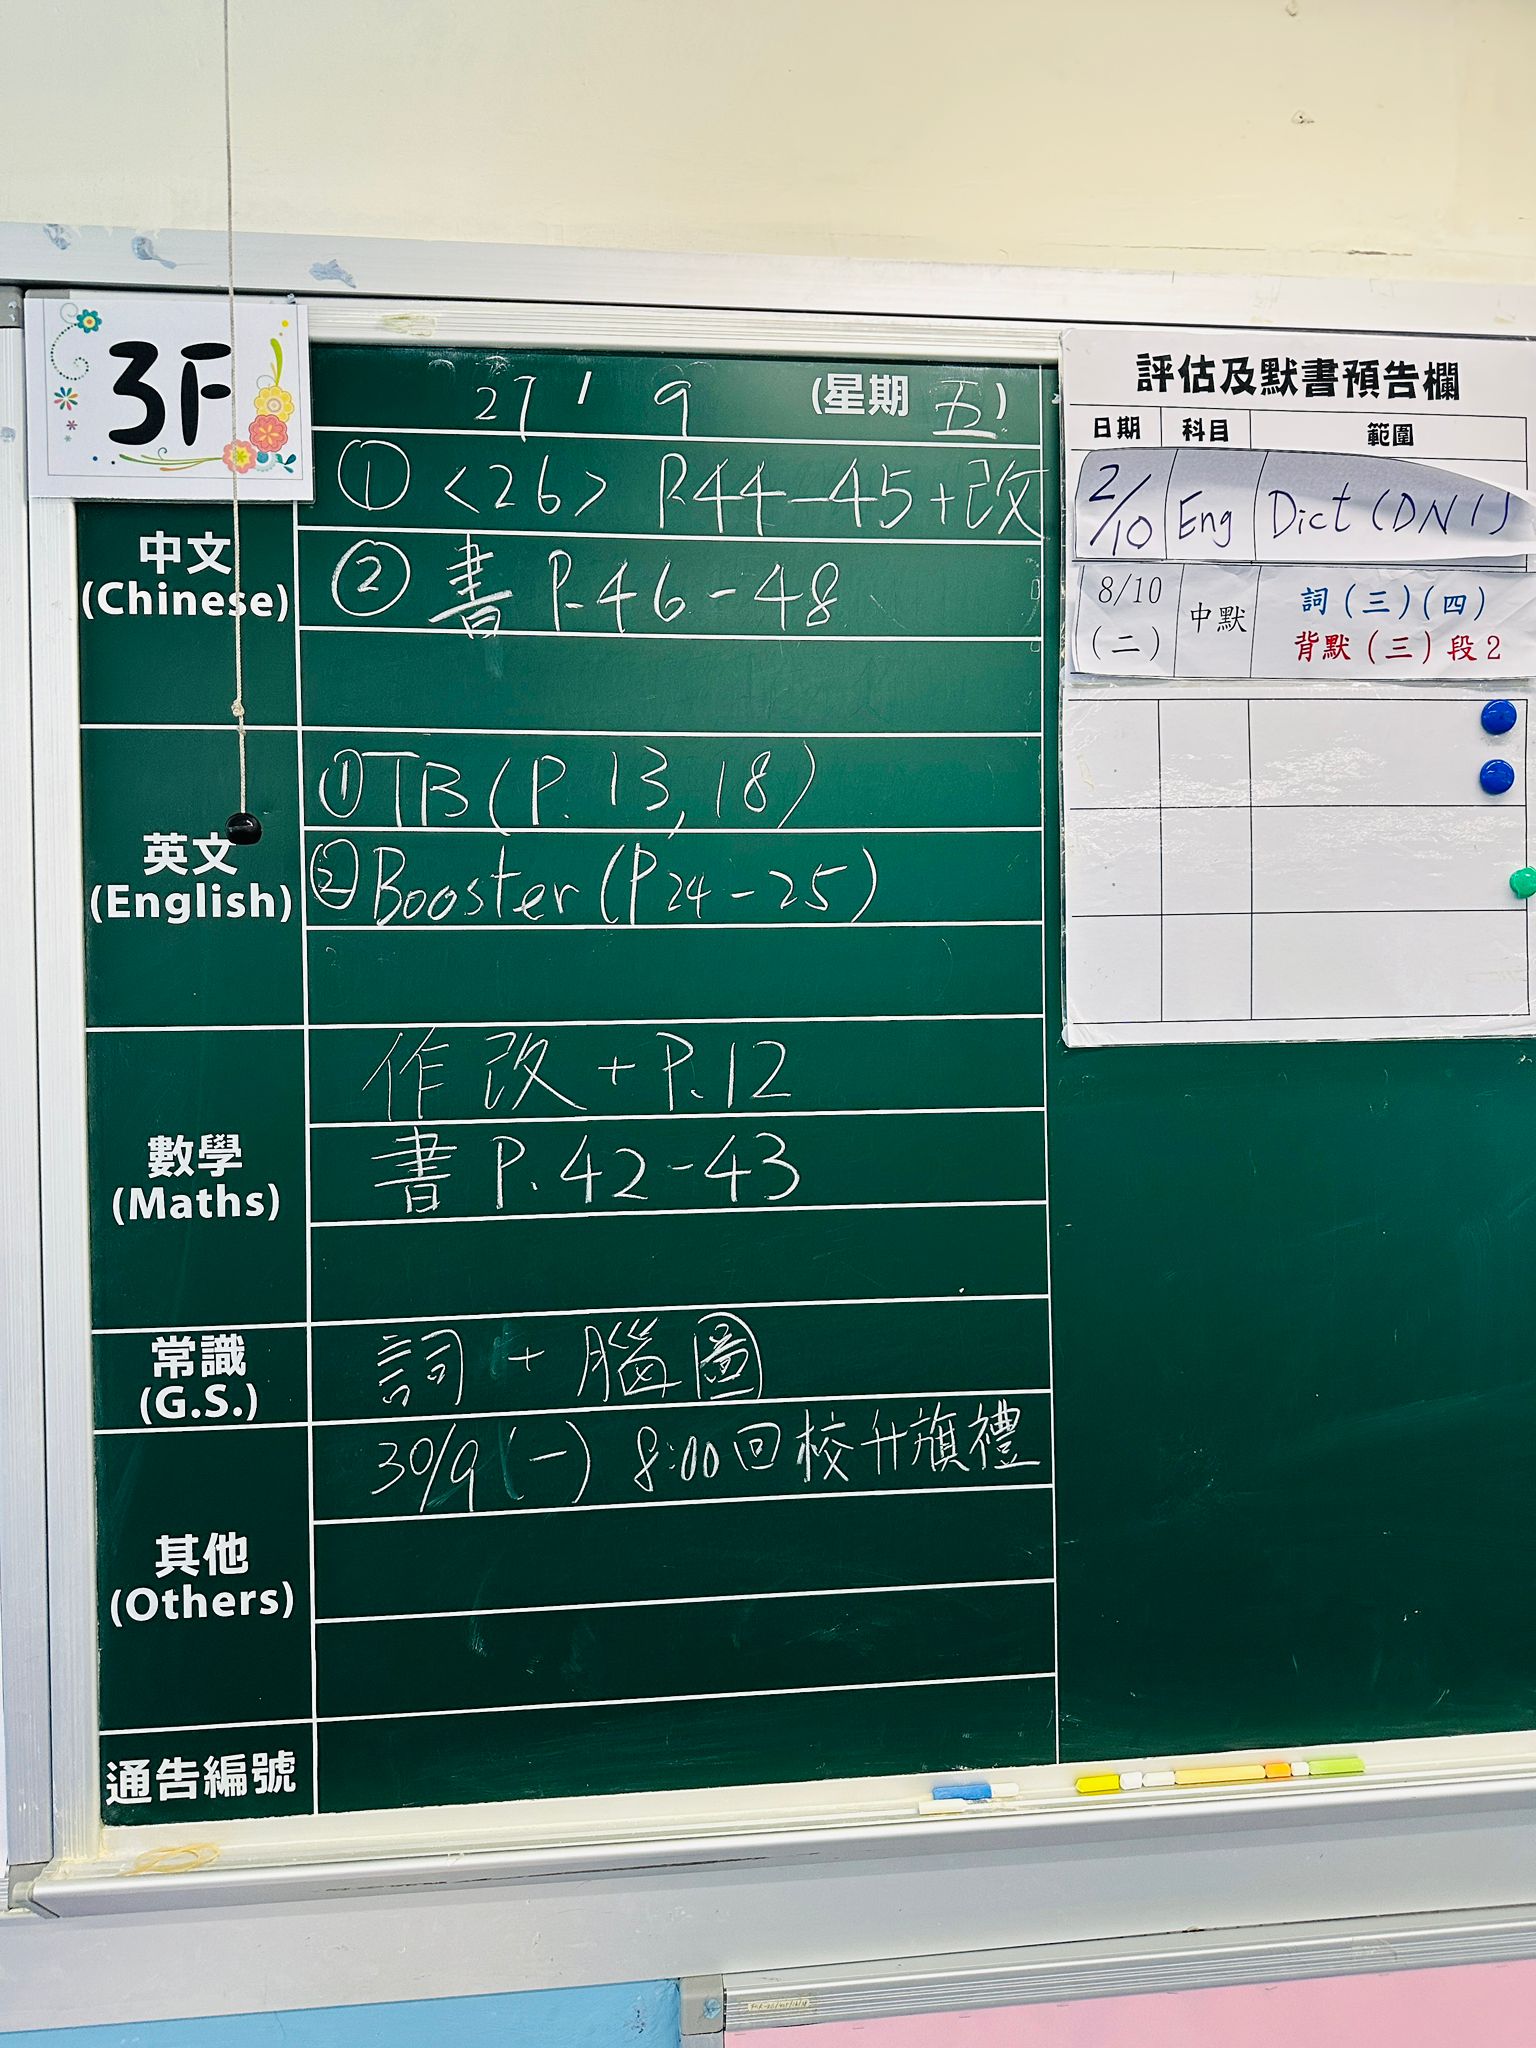 3F
27 / 9 (星期 五)
中文
(Chinese)
① <26> P.44-45+改
② 書 P.46-48
英文
(English)
① TB (P. 13, 18)
② Booster (P 24-25)
數學
(Maths)
作改 + P.12
書 P.42-43
常識
(G.S.)
詞 + 腦圖
其他
(Others)
30/9 (一) 8:00回校升旗禮
通告編號
評估及默書預告欄
日期 科目 範圍
2/10 Eng Dict (DN1)
8/10 (二) 中默 詞(三)(四)
背默(三)段2